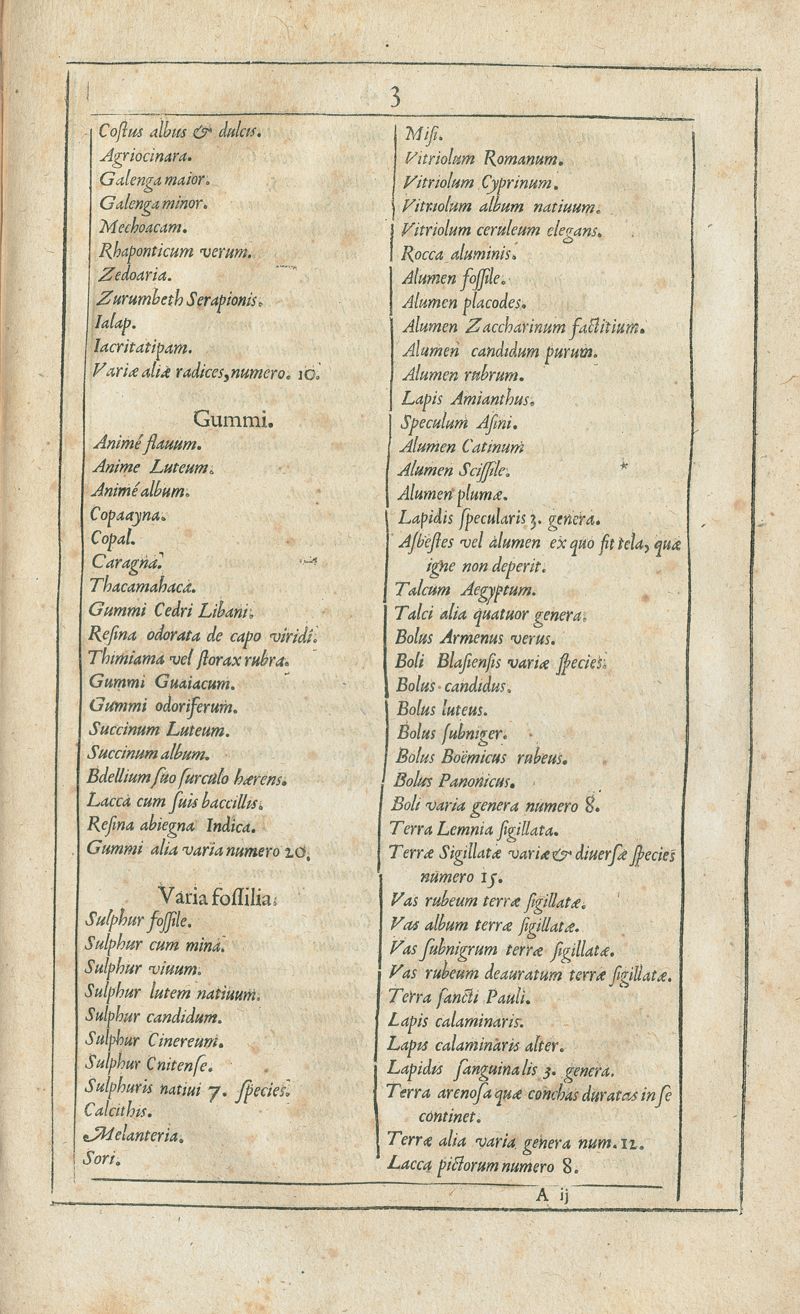 3
Coſtus albus & dulcis.
Agriocinara.
Galenga maior.
Galenga minor.
Mechoacam.
Rhaponticum verum.
Zedoaria.
Zurumbeth Serapionis.
Ialap.
Iacritatipam.
Variæ aliæ radices, numero. 10.
Gummi.
Animé flauum.
Anime Luteum.
Animé album.
Copaayna.
Copal.
Caragna.
Thacamahaca.
Gummi Cedri Libani.
Reſina odorata de capo viridi.
Thimiama vel ſtorax rubra.
Gummi Guaiacum.
Gummi odoriferum.
Succinum Luteum.
Succinum album.
Bdellium ſuo ſurculo hærens.
Lacca cum ſuis baccillis.
Reſina abiegna Indica.
Gummi alia varia numero 20.
Varia foſſilia.
Sulphur foſſile.
Sulphur cum mina.
Sulphur viuum.
Sulphur lutem natiuum.
Sulphur candidum.
Sulphur Cinereum.
Sulphur Cnitenſe.
Sulphuris natiui 7. ſpecies.
Calcithis.
Melanteria.
Sori.
Miſi.
Vitriolum Romanum.
Vitriolum Cyprinum.
Vitriolum album natiuum.
Vitriolum ceruleum elegans.
Rocca aluminis.
Alumen foſſile.
Alumen placodes.
Alumen Zaccharinum factitium.
Alumen candidum purum.
Alumen rubrum.
Lapis Amianthus.
Speculum Aſini.
Alumen Catinum
Alumen Sciſſile. *
Alumen plumæ.
Lapidis ſpecularis 3. genera.
Aſbeſtes vel alumen ex quo fit tela, quæ
igne non deperit.
Talcum Aegyptum.
Talci alia quatuor genera.
Bolus Armenus verus.
Boli Blaſienſis variæ ſpecies.
Bolus candidus.
Bolus luteus.
Bolus ſubniger.
Bolus Boëmicus rubeus.
Bolus Panonicus.
Boli varia genera numero 8.
Terra Lemnia ſigillata.
Terræ Sigillatæ variæ & diuerſæ ſpecies
numero 15.
Vas rubeum terræ ſigillatæ.
Vas album terræ ſigillatæ.
Vas ſubnigrum terræ ſigillatæ.
Vas rubeum deauratum terræ ſigillatæ.
Terra ſancti Pauli.
Lapis calaminaris.
Lapis calaminaris alter.
Lapidis ſanguinalis 3. genera.
Terra arenoſa quæ conchas duratas in ſe
continet.
Terræ alia varia genera num. 12.
Lacca pictorum numero 8.
A ij